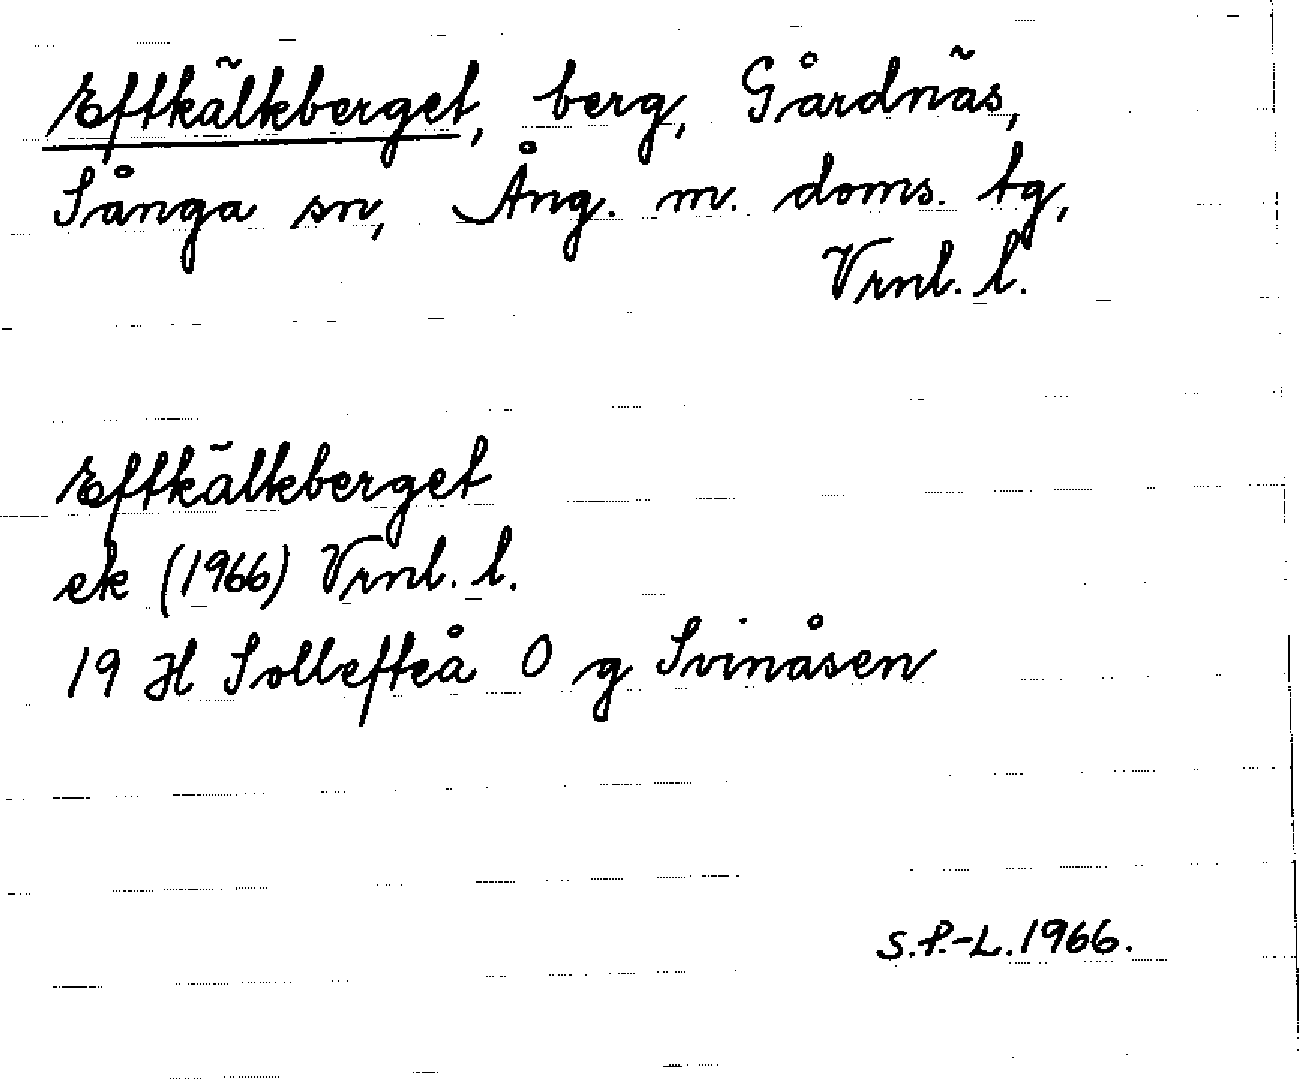 Eftkälkberget, berg, Gårdnäs,
Sånga sn, Ång. m. doms. tg,
Vrnl. l.
Eftkälkberget
ek (1966) Vrnl. l.
19 H Sollefteå O g Svinåsen
S.P.-L. 1966.